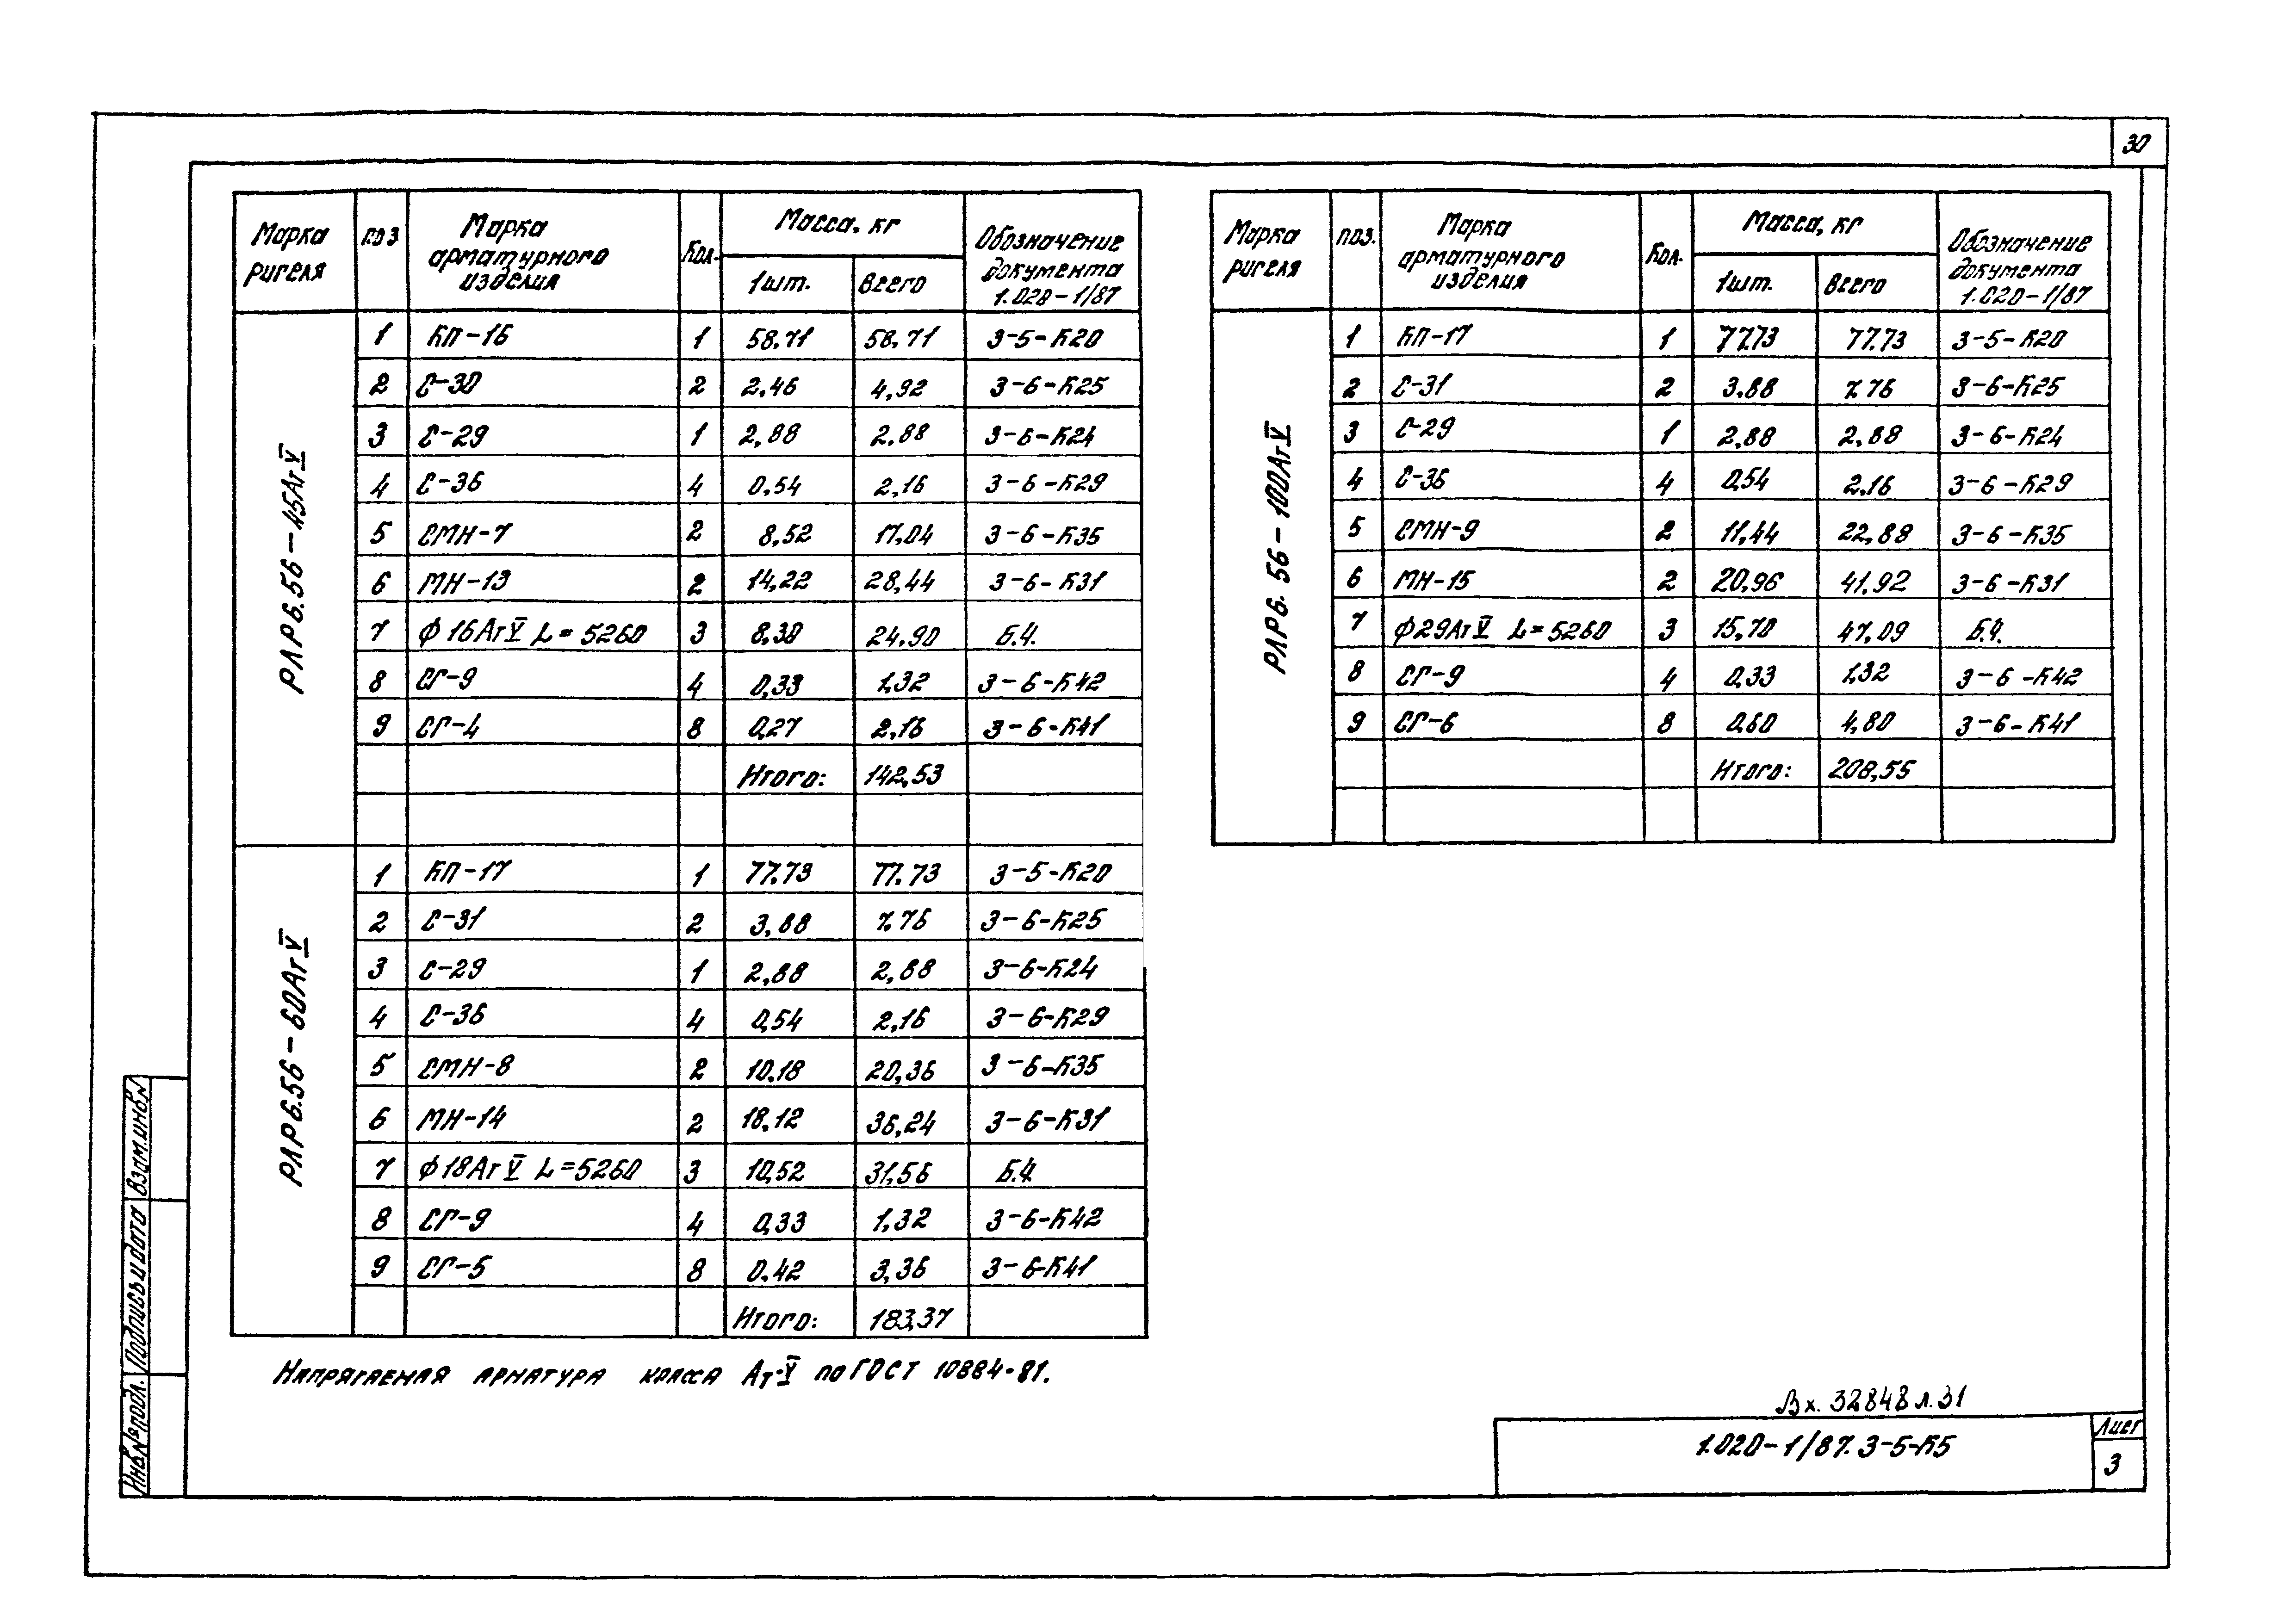 30
Марка ригеля | поз. | Марка арматурного изделия | Кол. | Масса, кг 1шт. | Всего | Обозначение документа 1.020-1/87
РЛР6.56-45АтV
1 | КП-16 | 1 | 58,71 | 58,71 | 3-5-К20
2 | С-30 | 2 | 2,46 | 4,92 | 3-6-К25
3 | С-29 | 1 | 2,88 | 2,88 | 3-6-К24
4 | С-36 | 4 | 0,54 | 2,16 | 3-6-К29
5 | СМН-7 | 2 | 8,52 | 17,04 | 3-6-К35
6 | МН-13 | 2 | 14,22 | 28,44 | 3-6-К31
7 | ф16АтV L=5260 | 3 | 8,30 | 24,90 | Б.Ч.
8 | СГ-9 | 4 | 0,33 | 1,32 | 3-6-К42
9 | СГ-4 | 8 | 0,27 | 2,16 | 3-6-К41
Итого: | 142,53
РЛР6.56-60АтV
1 | КП-17 | 1 | 77.73 | 77.73 | 3-5-К20
2 | С-31 | 2 | 3,88 | 7.76 | 3-6-К25
3 | С-29 | 1 | 2,88 | 2,88 | 3-6-К24
4 | С-36 | 4 | 0,54 | 2,16 | 3-6-К29
5 | СМН-8 | 2 | 10,18 | 20,36 | 3-6-К35
6 | МН-14 | 2 | 18,12 | 36,24 | 3-6-К31
7 | ф18АтV L=5260 | 3 | 10,52 | 31,56 | Б.Ч.
8 | СГ-9 | 4 | 0,33 | 1,32 | 3-6-К42
9 | СГ-5 | 8 | 0.42 | 3,36 | 3-6-К41
Итого: | 183,37
Марка ригеля | поз. | Марка арматурного изделия | Кол. | Масса, кг 1шт. | Всего | Обозначение документа 1.020-1/87
РЛР6.56-100АтV
1 | КП-17 | 1 | 77.73 | 77.73 | 3-5-К20
2 | С-31 | 2 | 3.88 | 7.76 | 3-6-К25
3 | С-29 | 1 | 2,88 | 2,88 | 3-6-К24
4 | С-36 | 4 | 0,54 | 2,16 | 3-6-К29
5 | СМН-9 | 2 | 11,44 | 22,88 | 3-6-К35
6 | МН-15 | 2 | 20,96 | 41,92 | 3-6-К31
7 | ф29АтV L=5260 | 3 | 15,70 | 47,09 | Б.Ч.
8 | СГ-9 | 4 | 0,33 | 1,32 | 3-6-К42
9 | СГ-6 | 8 | 0,60 | 4,80 | 3-6-К41
Итого: | 208,55
Напрягаемая арматура класса Ат-V по ГОСТ 10884-81.
Вх. 32848 л.31
1.020-1/87. 3-5-К5
Лист
3
Инв.№подл.
Подпись и дата
Взам.инв.№